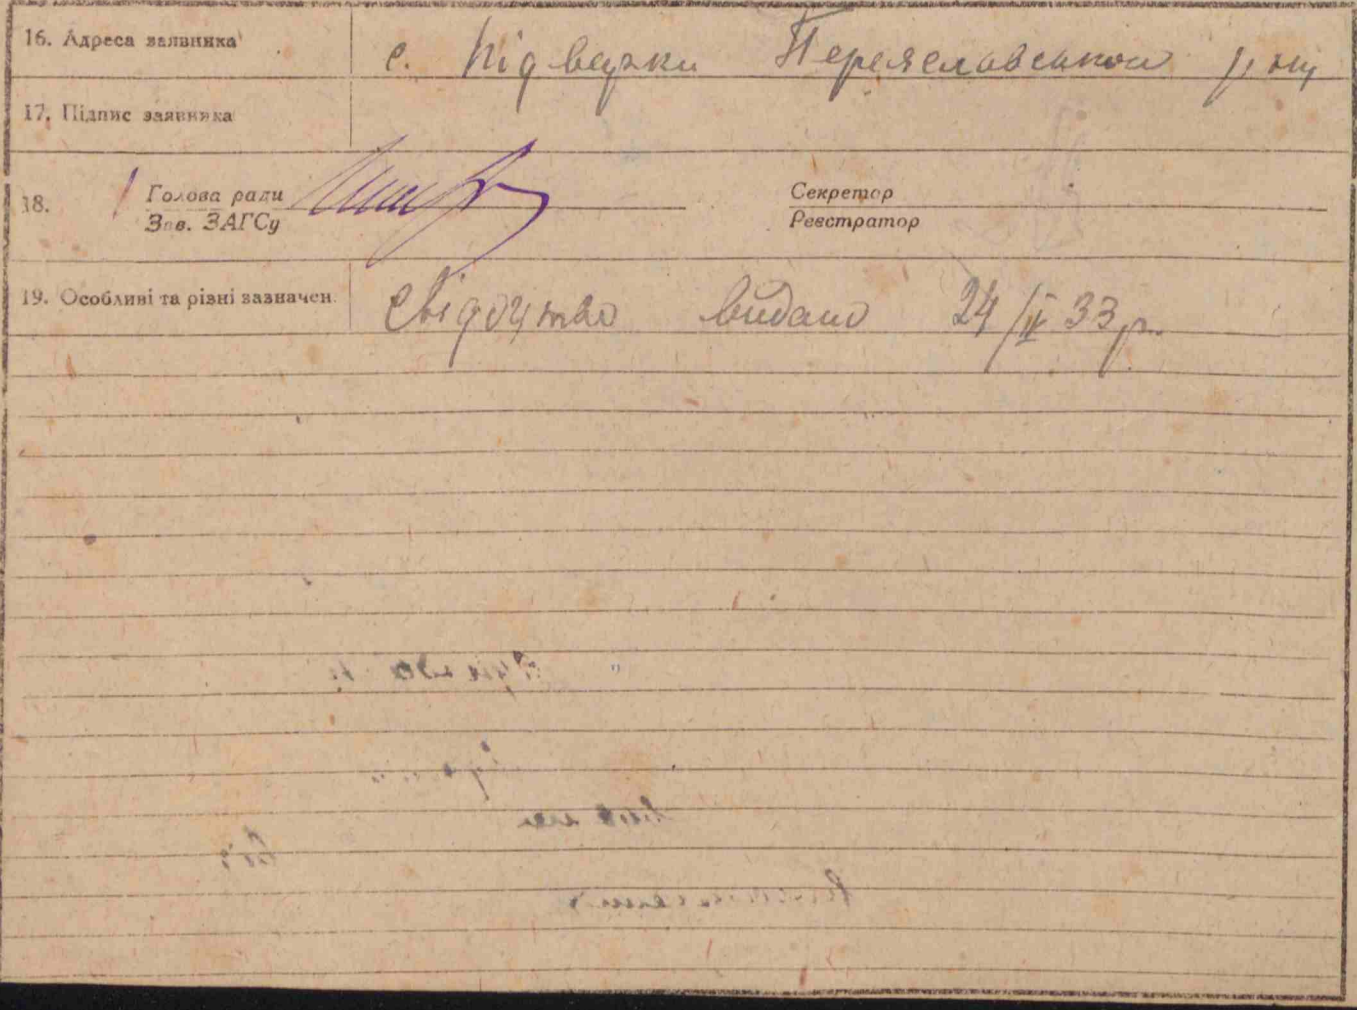 16. Адреса заявника с. Підварки Переяславського р-ну
17. Підпис заявника
18. Голова ради Секретар
Зав. ЗАГСу Реєстратор
19. Особливі та різні зазначен. Свідоцтво видано 24/II 33 р.